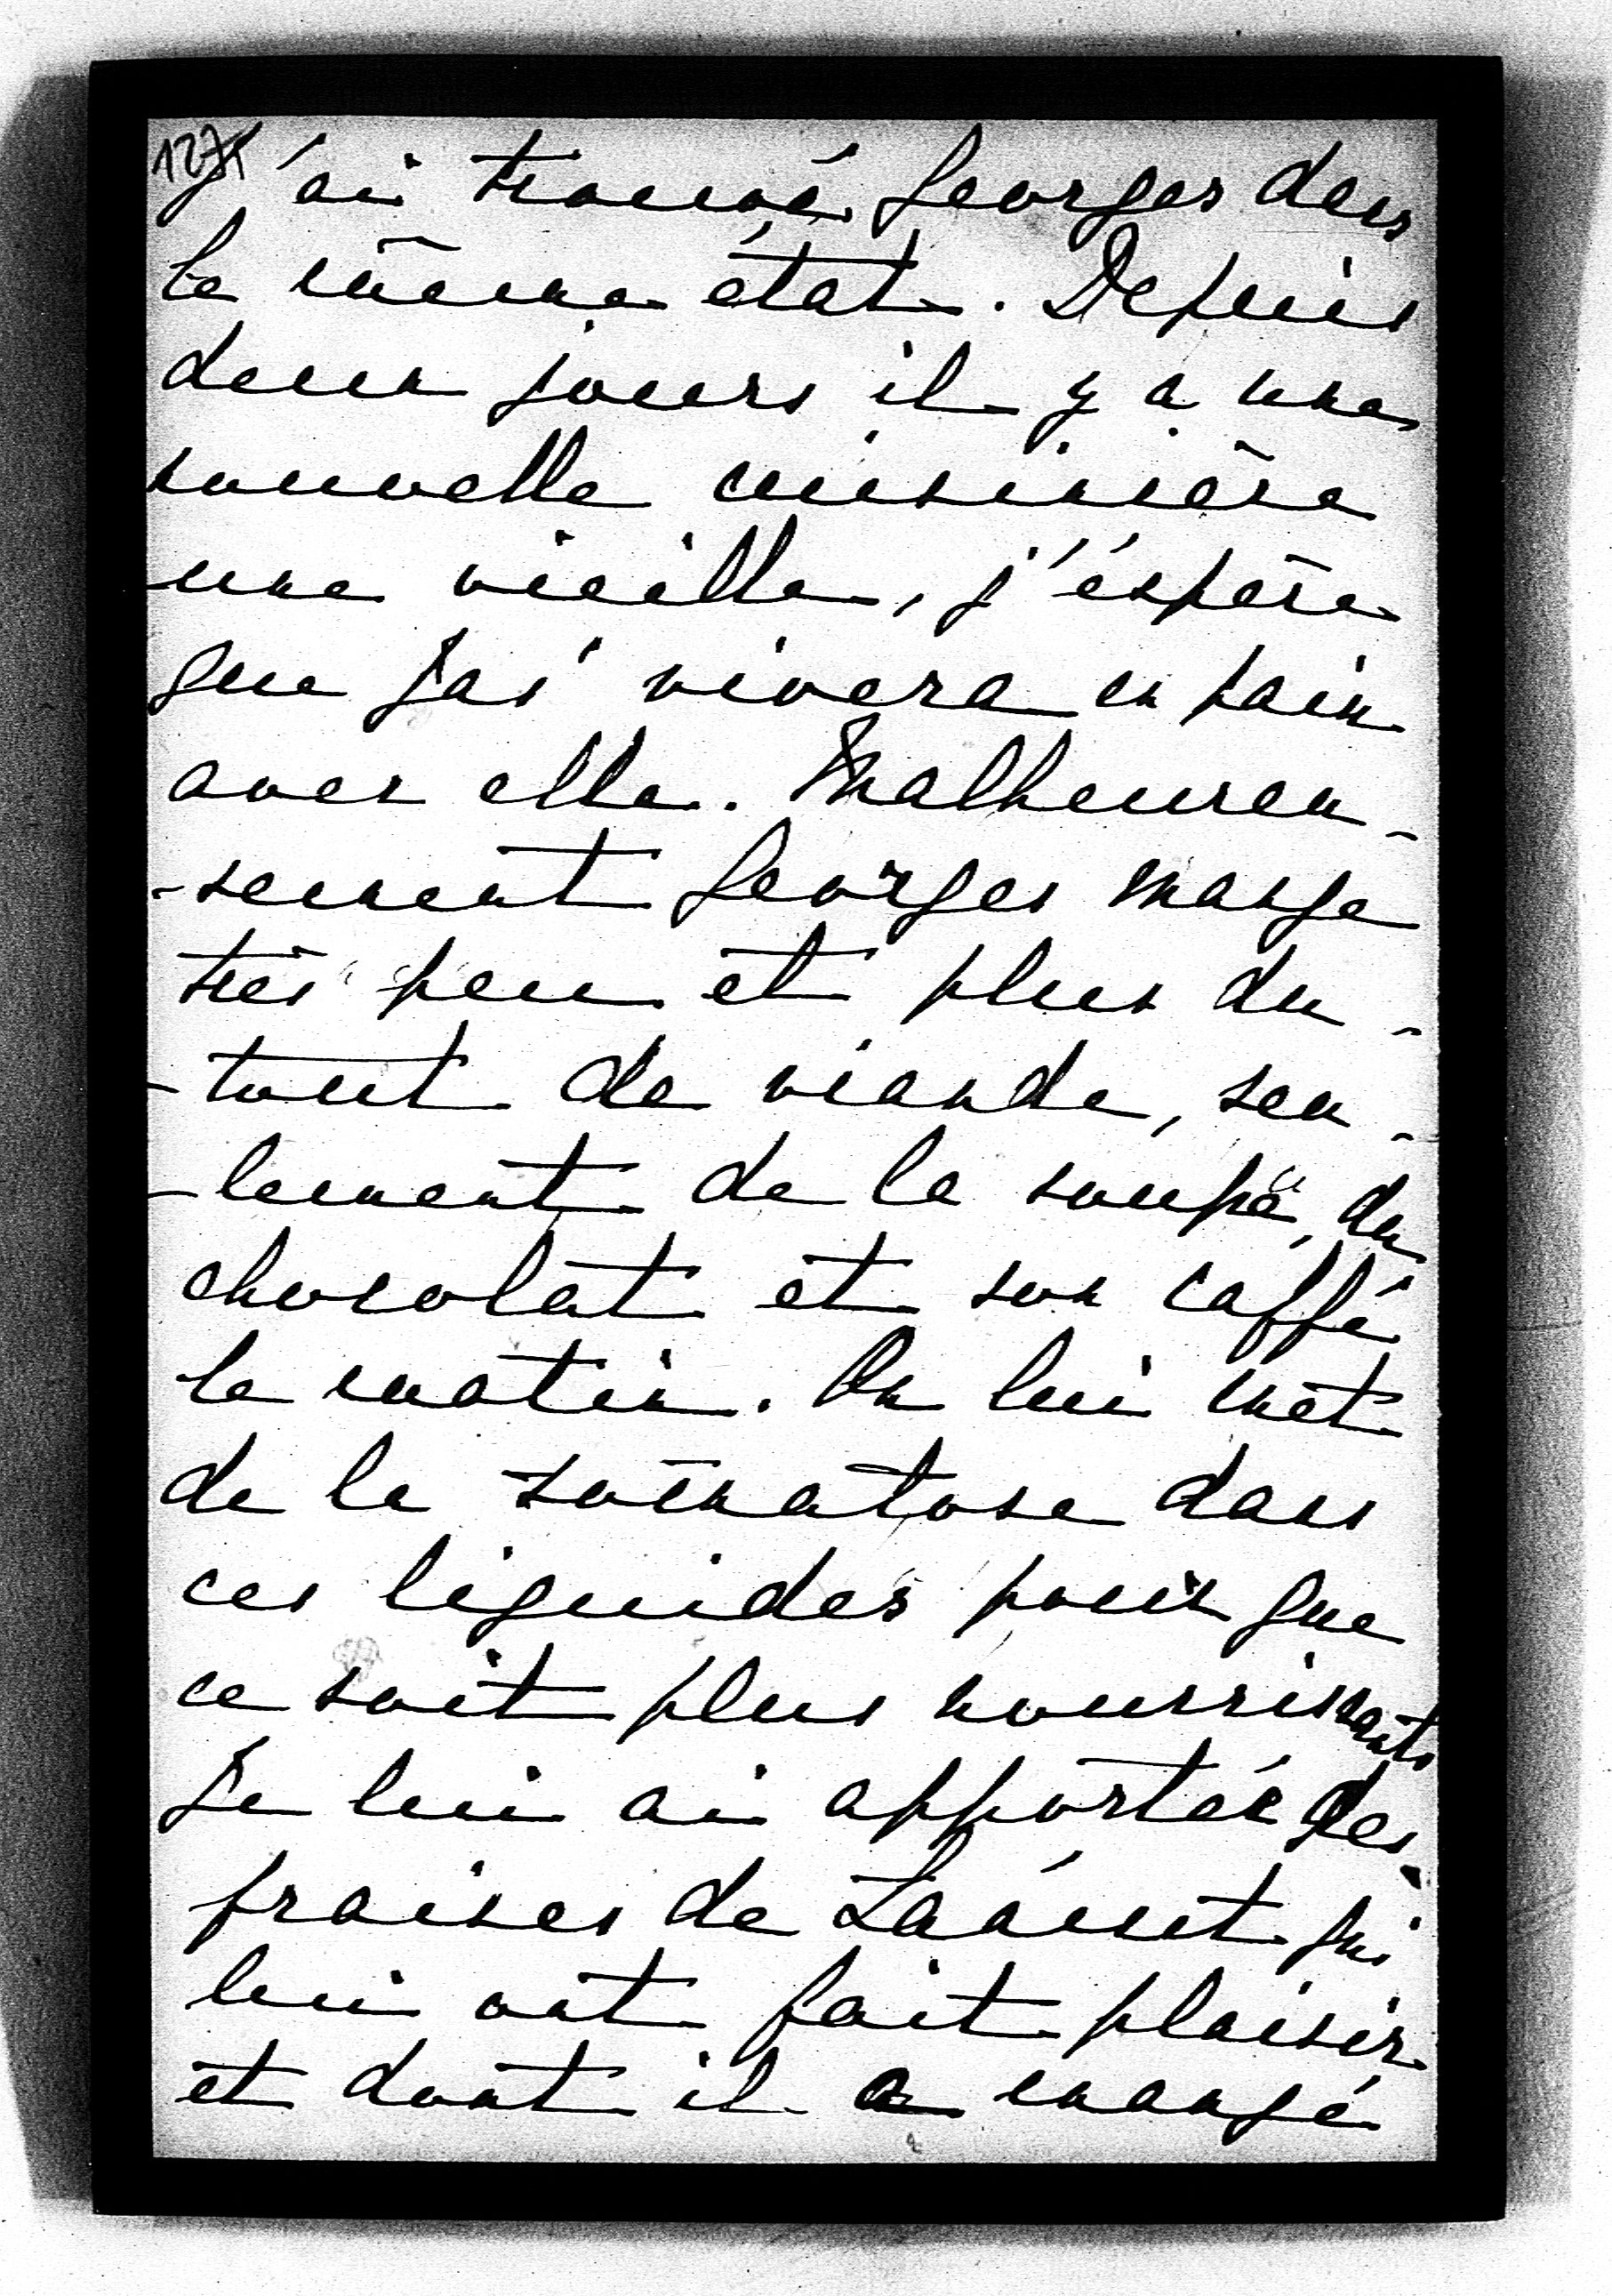 J'ai trouvé Georges dans
le même état. Depuis
deux jours il y a une
nouvelle cuisinière
une vieille, j'éspère
que Jas' vivera en paix
avec elle. Malheureu-
-sement Georges mange
très peu et plus du-
-tout de viande, seu-
-lement de la soupe, du
chocolat et son caffé
le matin. On lui met
de la somatose dans
ces liquides pour que
ce soit plus nourrissants
Je lui ai apporté des
fraises de qui
lui ont fait plaisir
et dont il a mangé